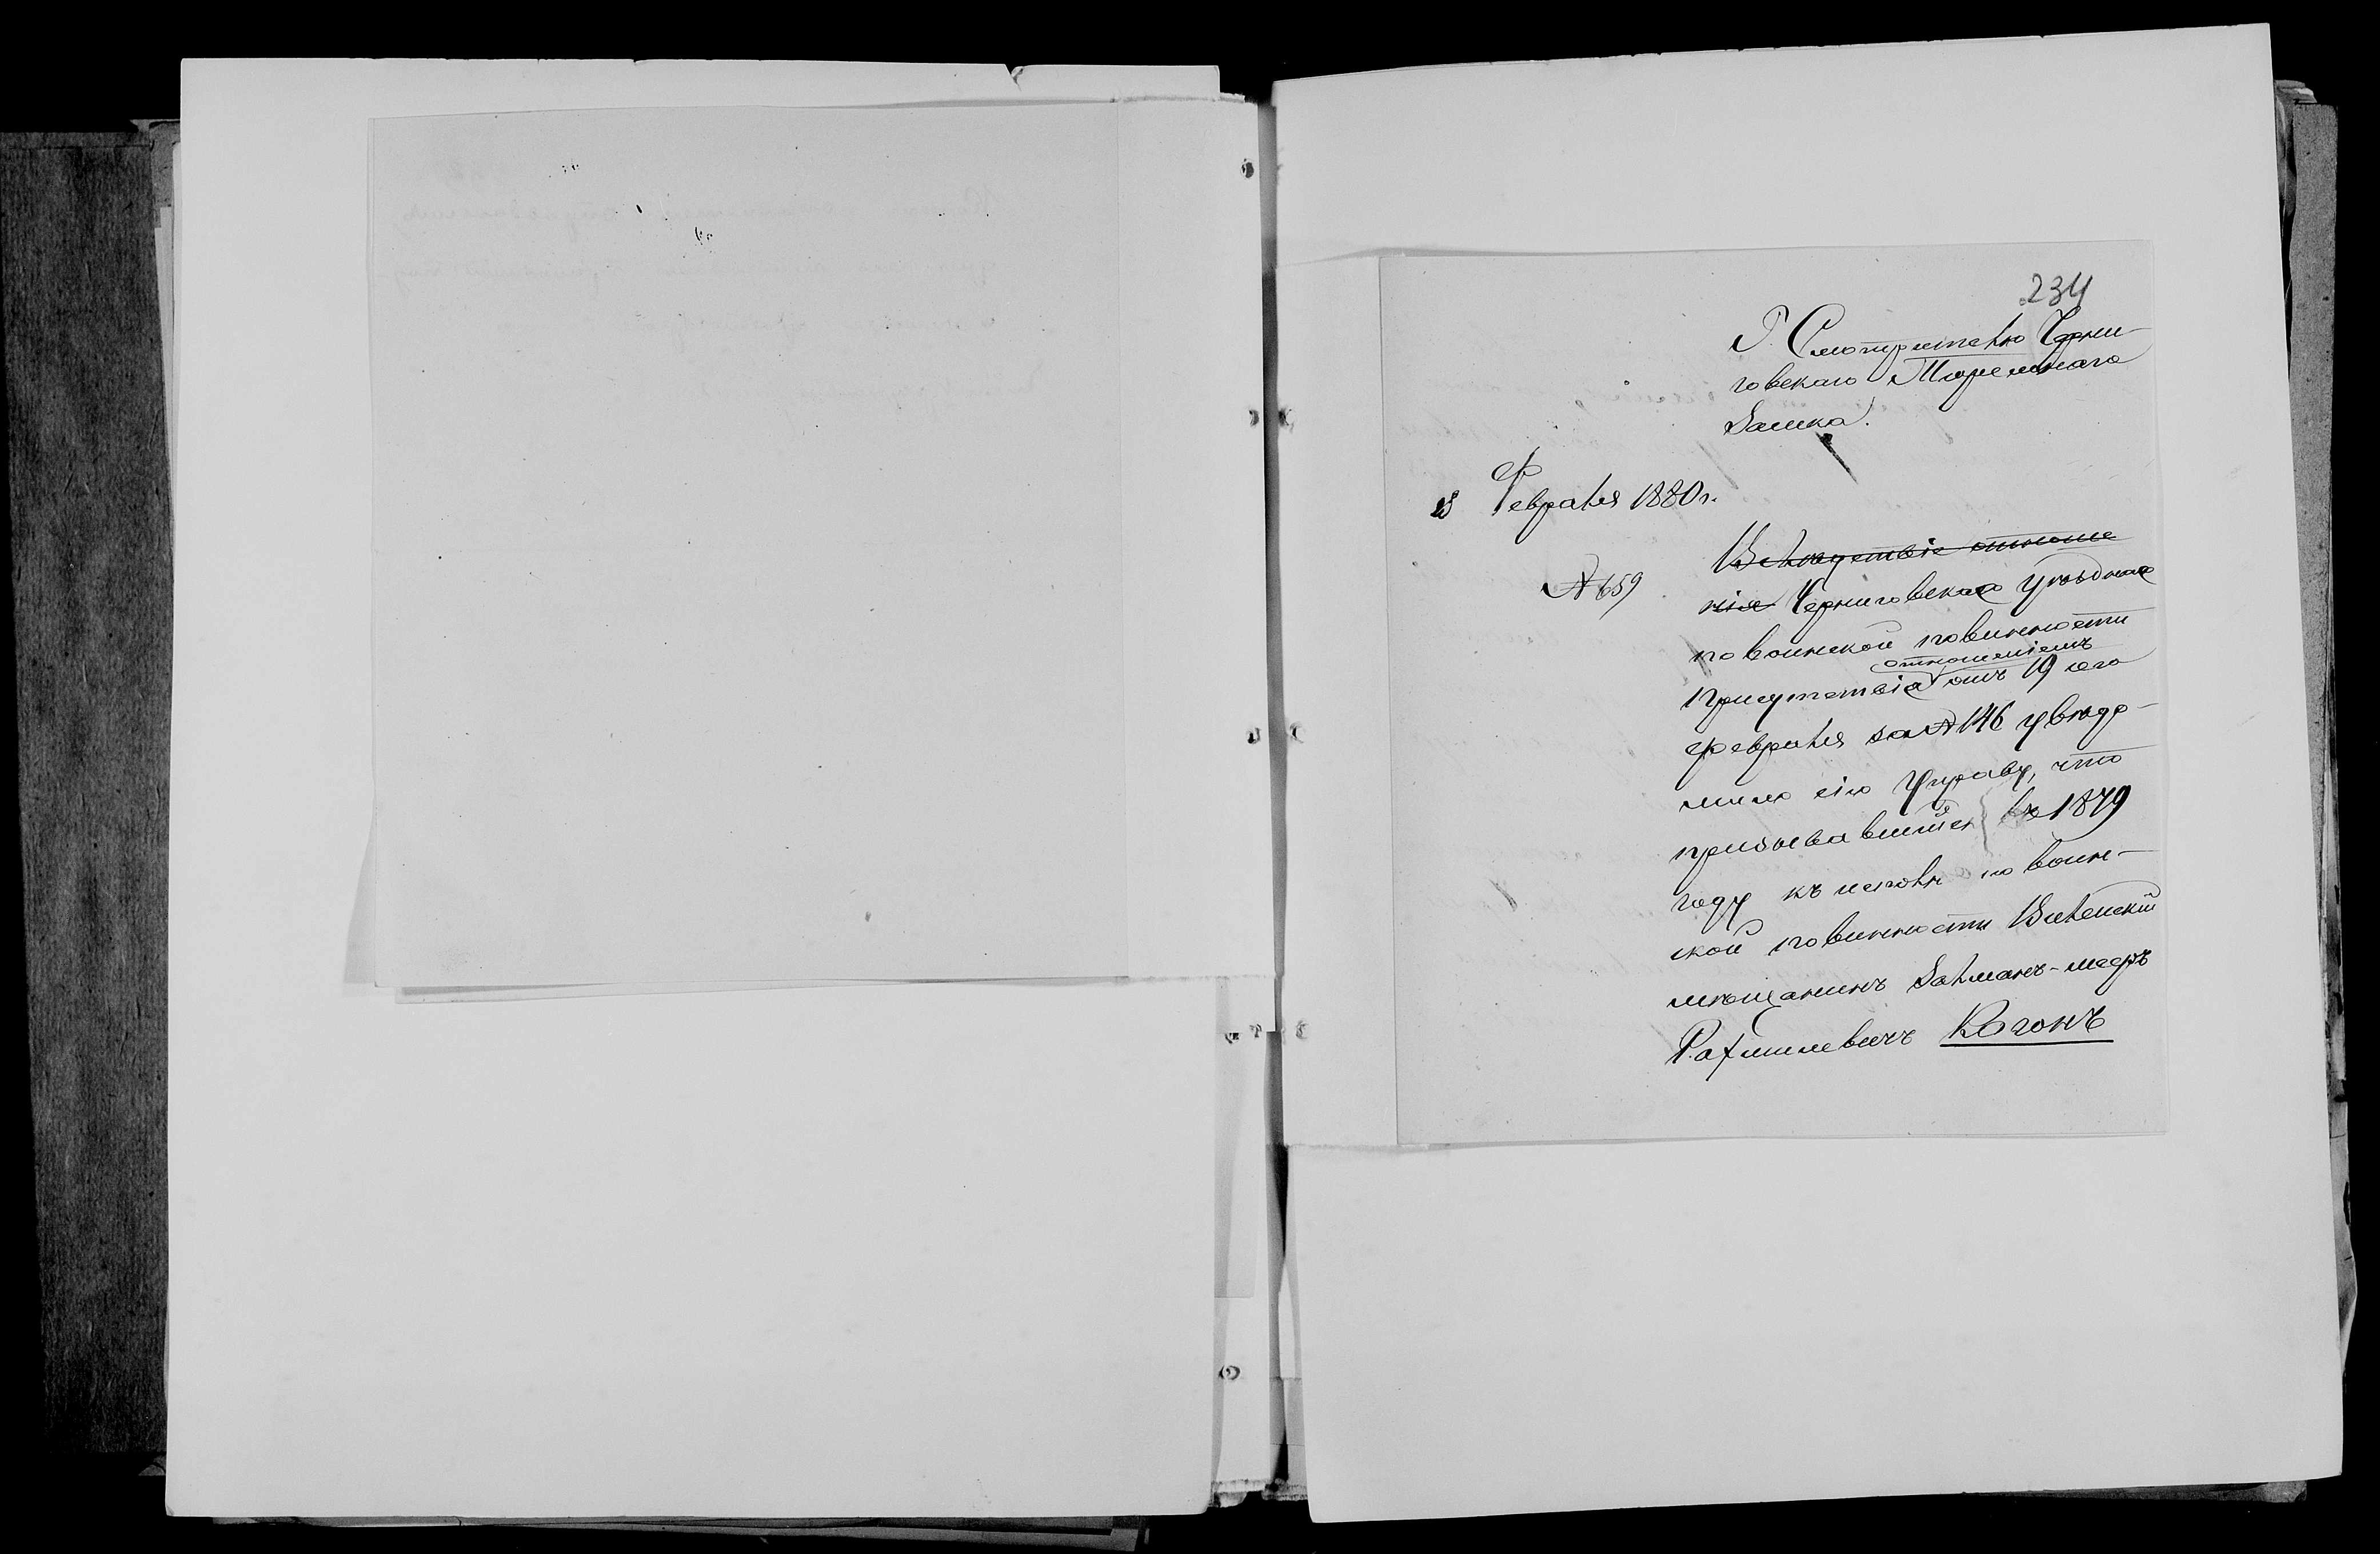 234
Г. Смотрителю Черни-
говскаго Тюремнаго
Замка.
23 Февраля 1880 г.
Вслѣдствіе отноше
№ 659
нія Черниговское Уѣздное
по воинской повинности
отношеніемъ
Присутствіе отъ 19 сего
февраля за № 146 увѣдо-
мило сію Управу, что
призывавшійся въ 1879
году къ исполн по воин-
ской повинности Виленскій
мѣщанинъ Залманъ-мееръ
Рахмилевичъ Когонъ